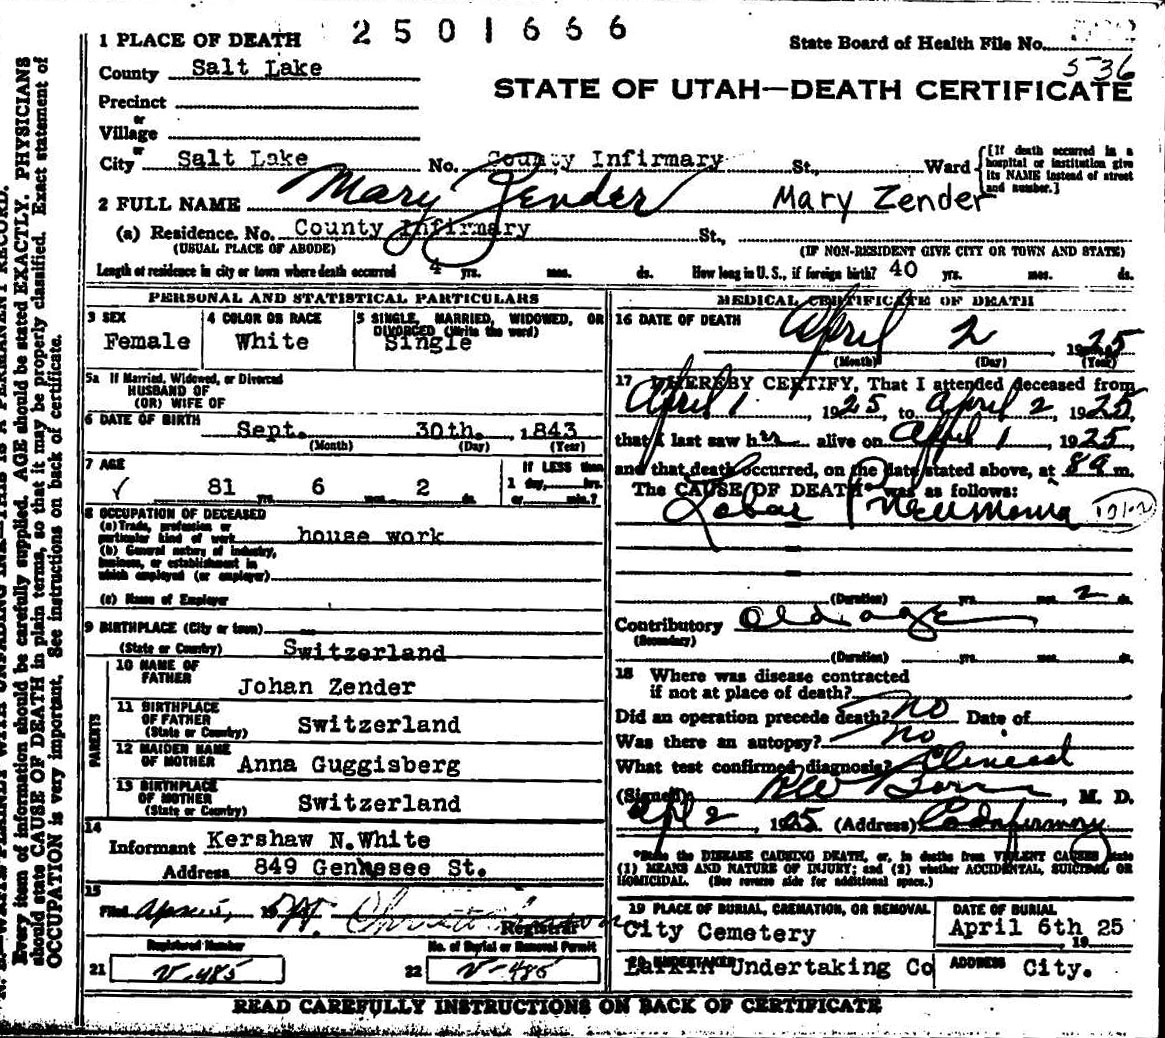 2501666
1 PLACE OF DEATH
State Board of Health File No.
536
County Salt Lake
STATE OF UTAH—DEATH CERTIFICATE
Precinct
or
Village
or
City Salt Lake No. County Infirmary St., Ward
[If death occurred in a hospital or institution give its NAME instead of street and number.]
2 FULL NAME Mary Zender Mary Zender
(a) Residence. No. County Infirmary St.,
(USUAL PLACE OF ABODE) (IF NON-RESIDENT GIVE CITY OR TOWN AND STATE)
Length of residence in city or town where death occurred 4 yrs. mos. ds. How long in U. S., if foreign birth? 40 yrs. mos. ds.
PERSONAL AND STATISTICAL PARTICULARS
3 SEX Female
4 COLOR OR RACE White
5 SINGLE, MARRIED, WIDOWED, OR DIVORCED (Write the word) Single
5a If Married, Widowed, or Divorced
HUSBAND OF
(OR) WIFE OF
6 DATE OF BIRTH Sept. 30th. , 1843
(Month) (Day) (Year)
7 AGE 81 yrs. 6 mos. 2 ds.
If LESS than 1 day, hrs. or min.?
8 OCCUPATION OF DECEASED
(a) Trade, profession or particular kind of work house work
(b) General nature of industry, business, or establishment in which employed (or employer)
(c) Name of Employer
9 BIRTHPLACE (City or town)
(State or Country) Switzerland
PARENTS
10 NAME OF FATHER Johan Zender
11 BIRTHPLACE OF FATHER (State or Country) Switzerland
12 MAIDEN NAME OF MOTHER Anna Guggisberg
13 BIRTHPLACE OF MOTHER (State or Country) Switzerland
14
Informant Kershaw N.White
Address 849 Genessee St.
15
Filed
Registrar
Registered Number No. of Burial or Removal Permit
21 V-485 22 V-485
MEDICAL CERTIFICATE OF DEATH
16 DATE OF DEATH April 2 , 1925
(Month) (Day) (Year)
17 I HEREBY CERTIFY, That I attended deceased from
April 1 , 1925, to April 2, 1925,
that I last saw her alive on April 1, 1925
and that death occurred, on the date stated above, at 8 a m.
The CAUSE OF DEATH* was as follows:
Lobar Pneumonia
(Duration) yrs. mos. 2 ds.
Contributory Old age
(Secondary)
(Duration) yrs. mos. ds.
18 Where was disease contracted
if not at place of death?
Did an operation precede death? No Date of
Was there an autopsy? No
What test confirmed diagnosis? Clinical
(Signed) , M. D.
Apl 2, 1925 (Address) Co Infirmary
*State the DISEASE CAUSING DEATH, or, in deaths from VIOLENT CAUSES state
(1) MEANS AND NATURE OF INJURY; and (2) whether ACCIDENTAL, SUICIDAL OR
HOMICIDAL. (See reverse side for additional space.)
19 PLACE OF BURIAL, CREMATION, OR REMOVAL
City Cemetery
DATE OF BURIAL
April 6th 25
19
20 UNDERTAKER
Larkin Undertaking Co
ADDRESS City.
READ CAREFULLY INSTRUCTIONS ON BACK OF CERTIFICATE
Every item of information should be carefully supplied. AGE should be stated EXACTLY. PHYSICIANS
should state CAUSE OF DEATH in plain terms, so that it may be properly classified. Exact statement of
OCCUPATION is very important. See instructions on back of certificate.